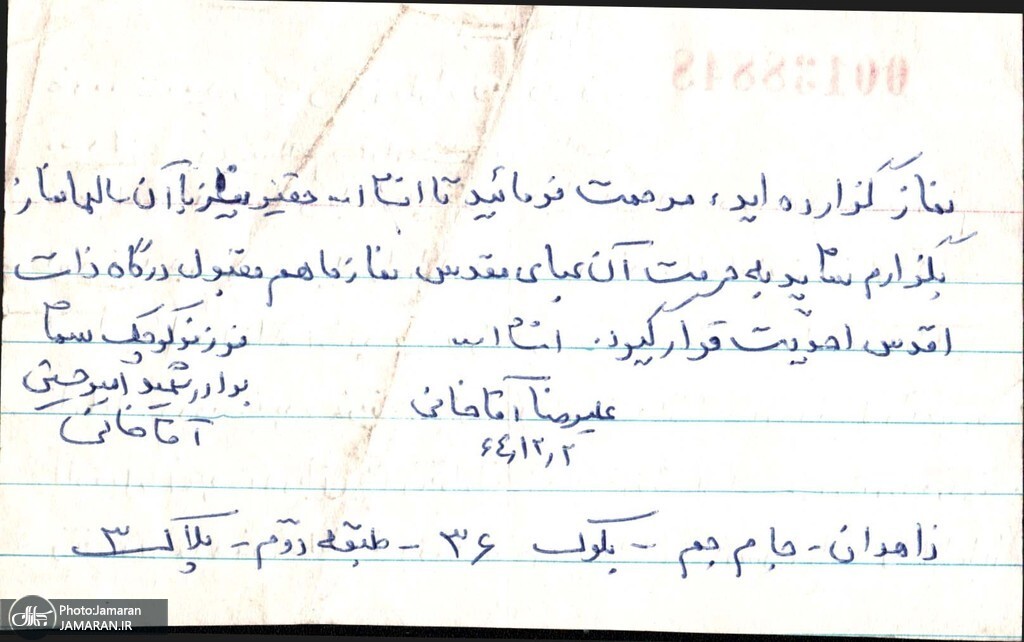 00138848
نماز گزارده اید، مرحمت فرمائید تا انشاا... حقیر نیز با آن سالها نماز
بگزارم شاید به حرمت آن عبای مقدس نماز ما هم مقبول درگاه ذات
اقدس احدیت قرار گیرد. انشاا...
فرزند کوچک شما
علیرضا آقاخانی
برادر شهید امیرحسین
آقاخانی
۶۴٫۱۲٫۲
زاهدان - جام جم - بلوک ۳۶ - طبقه دوّم - پلاک ۳
Photo:Jamaran
JAMARAN.IR